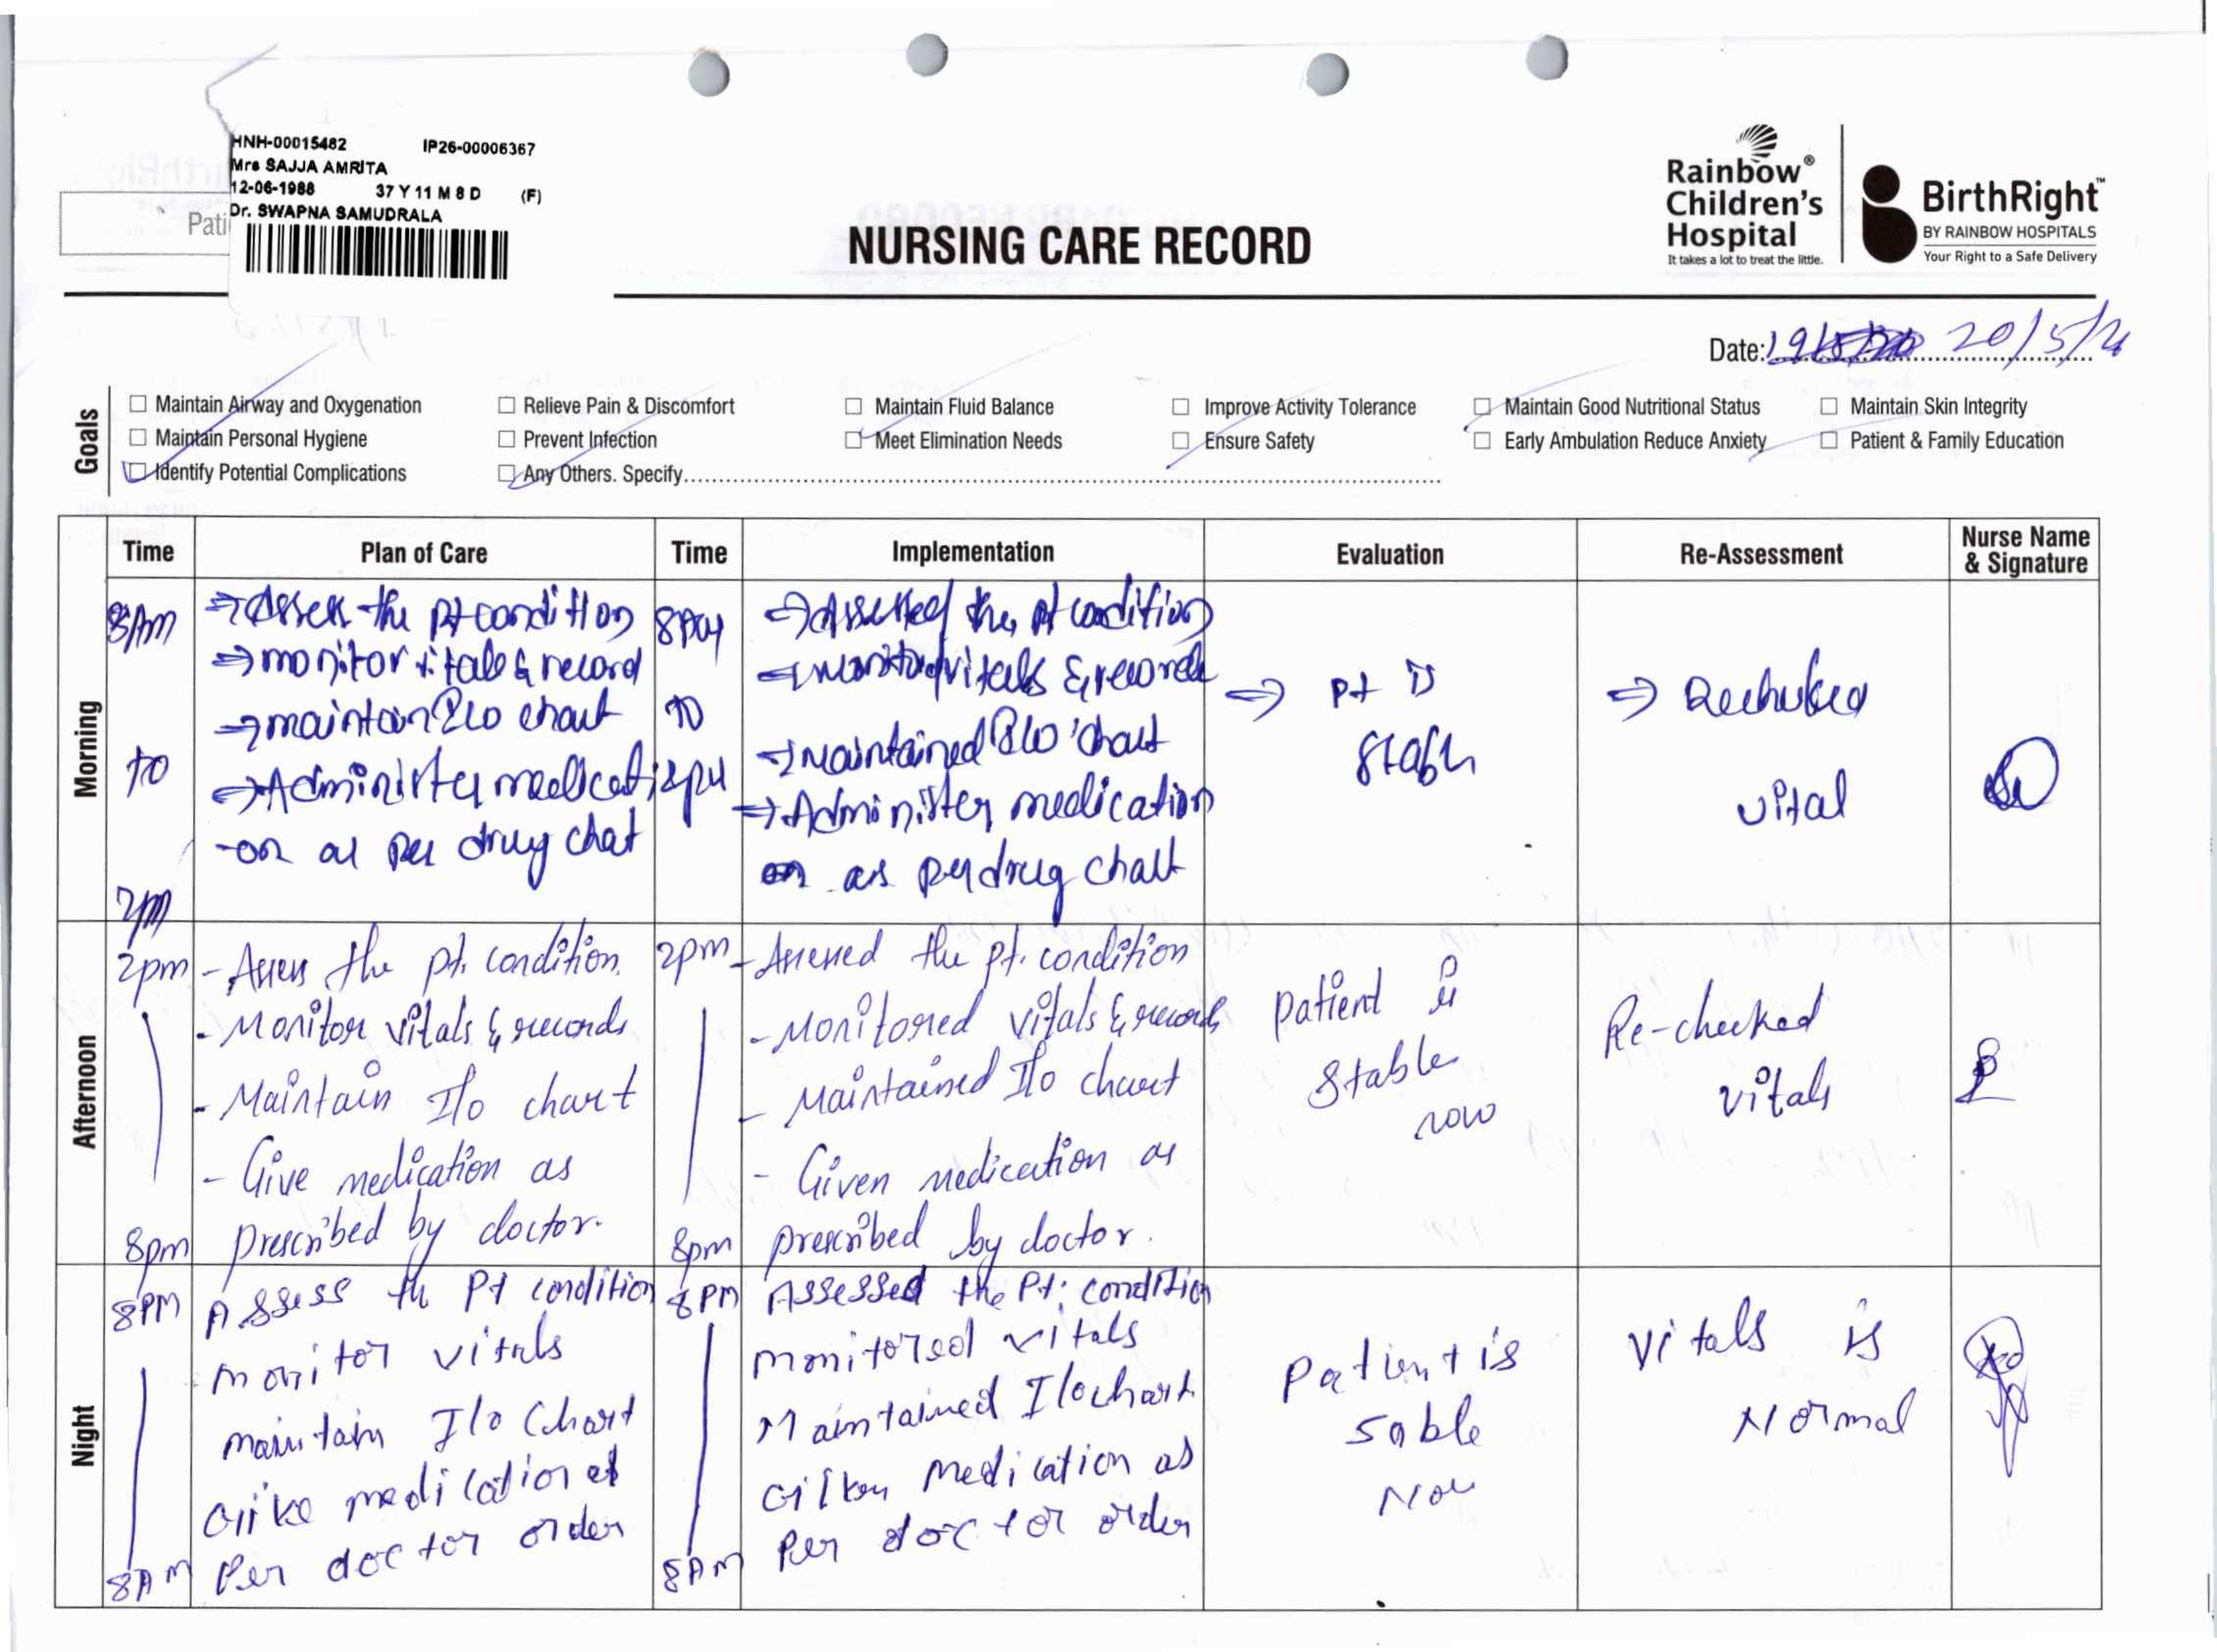 HNH-00015482 IP26-00006367
Mrs SAJJA AMRITA
12-06-1988 37 Y 11 M 8 D (F)
Dr. SWAPNA SAMUDRALA
Pati
NURSING CARE RECORD
Rainbow®
Children's
Hospital
It takes a lot to treat the little.
BirthRight™
BY RAINBOW HOSPITALS
Your Right to a Safe Delivery
Date: 20/5/
Goals
☐ Maintain Airway and Oxygenation ☐ Relieve Pain & Discomfort ☐ Maintain Fluid Balance ☐ Improve Activity Tolerance ☐ Maintain Good Nutritional Status ☐ Maintain Skin Integrity
☐ Maintain Personal Hygiene ☐ Prevent Infection ☐ Meet Elimination Needs ☐ Ensure Safety ☐ Early Ambulation Reduce Anxiety ☐ Patient & Family Education
☐ Identify Potential Complications ☐ Any Others. Specify
Time Plan of Care Time Implementation Evaluation Re-Assessment Nurse Name & Signature
Morning
8Am
to
2pm
⇒ Assess the pt condition
⇒ monitor vitals & record
→ maintain I/O chart
⇒ Administer medicati
-on as per drug chat
to
2pm
⇒ Assessed the pt condition
⇒ Monitored vitals & record
⇒ Maintained I/O chart
⇒ Administer medication
as per drug chart
⇒ Pt is
stable
⇒ Rechecked
vital
Afternoon
2pm
8pm
- Assess the pt. condition.
- Monitor vitals & records
- Maintain I/o chart
- Give medication as
prescribed by doctor.
2pm
8pm
- Assessed the pt. condition
- Monitored vitals & records
- Maintained I/o chart
- Given medication as
prescribed by doctor.
patient is
stable
now
Re-checked
vitals
Night
8PM
8AM
Assess the Pt condition
monitor vitals
maintain I/o Chart
Give medication as
Per doctor order
8PM
8AM
Assessed the Pt. condition
monitored vitals
Maintained I/o chart
Given Medication as
Per doctor order
Patient is
sable
Now
Vitals is
Normal